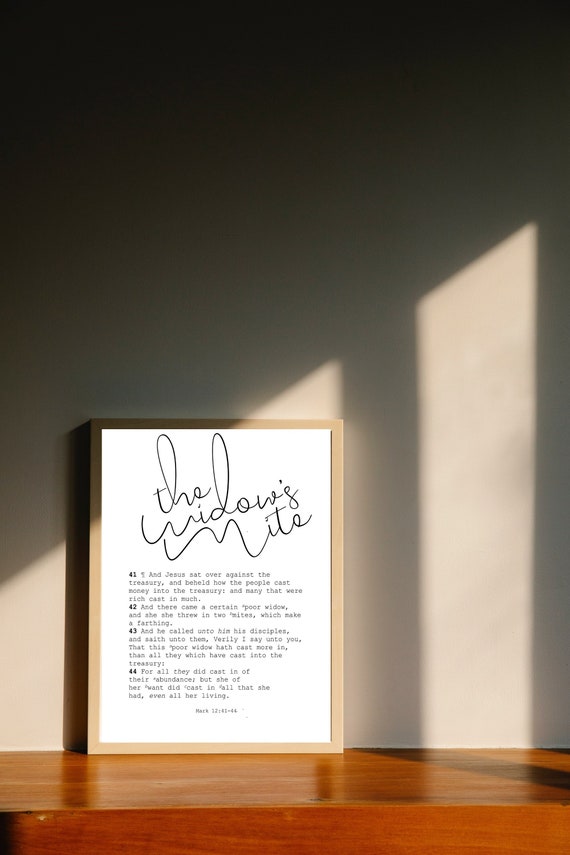 the
widow's
mite
41 ¶ And Jesus sat over against the
treasury, and beheld how the people cast
money into the treasury: and many that were
rich cast in much.
42 And there came a certain ᵃpoor widow,
and she she threw in two ᵇmites, which make
a farthing.
43 And he called unto him his disciples,
and saith unto them, Verily I say unto you,
That this ᵃpoor widow hath cast more in,
than all they which have cast into the
treasury:
44 For all they did cast in of
their ᵃabundance; but she of
her ᵇwant did ᶜcast in ᵈall that she
had, even all her living.
Mark 12:41-44